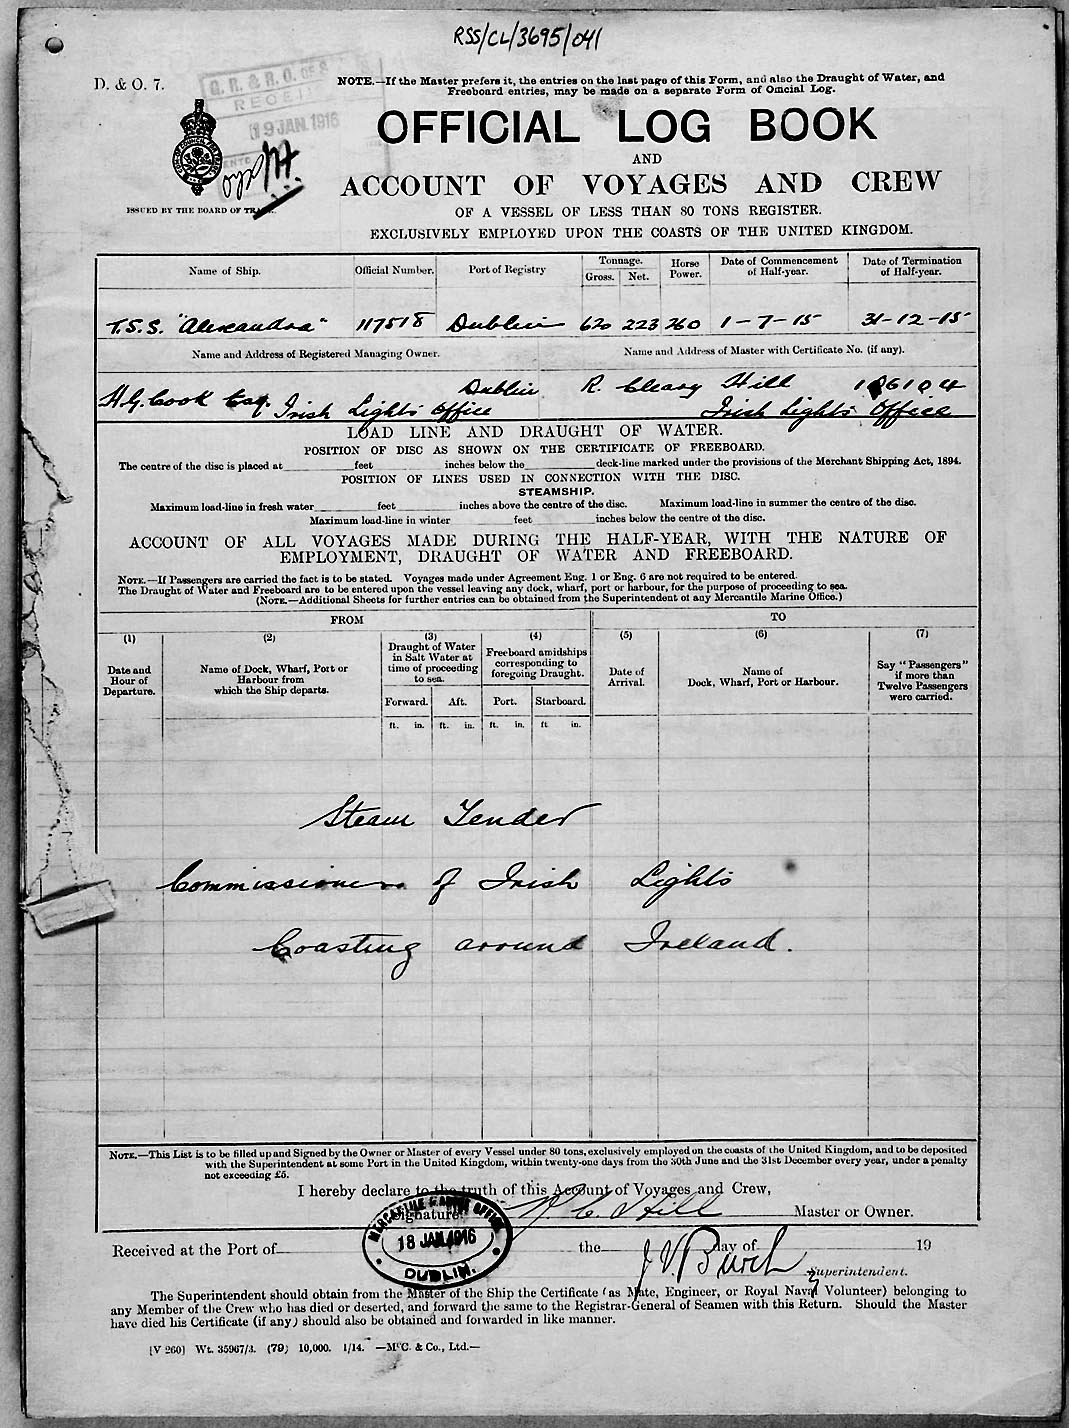 RSS/CL/3695/041
D. & O. 7.
G. R. & R. O. OF S
RECEI
19 JAN. 1916
NOTE.—If the Master prefers it, the entries on the last page of this Form, and also the Draught of Water, and
Freeboard entries, may be made on a separate Form of Official Log.
OFFICIAL LOG BOOK
AND
ACCOUNT OF VOYAGES AND CREW
OF A VESSEL OF LESS THAN 80 TONS REGISTER.
EXCLUSIVELY EMPLOYED UPON THE COASTS OF THE UNITED KINGDOM.
ISSUED BY THE BOARD OF TRADE.
Name of Ship. Official Number. Port of Registry Tonnage. Gross. Net. Horse Power. Date of Commencement of Half-year. Date of Termination of Half-year.
T.S.S. "Alexandra" 117518 Dublin 620 223 260 1-7-15 31-12-15
Name and Address of Registered Managing Owner. Name and Address of Master with Certificate No. (if any).
H.G. Cook Esq. Irish Lights Office Dublin R. Cleary Hill 106104
Irish Lights Office
LOAD LINE AND DRAUGHT OF WATER.
POSITION OF DISC AS SHOWN ON THE CERTIFICATE OF FREEBOARD.
The centre of the disc is placed at feet inches below the deck-line marked under the provisions of the Merchant Shipping Act, 1894.
POSITION OF LINES USED IN CONNECTION WITH THE DISC.
STEAMSHIP.
Maximum load-line in fresh water feet inches above the centre of the disc. Maximum load-line in summer the centre of the disc.
Maximum load-line in winter feet inches below the centre of the disc.
ACCOUNT OF ALL VOYAGES MADE DURING THE HALF-YEAR, WITH THE NATURE OF
EMPLOYMENT, DRAUGHT OF WATER AND FREEBOARD.
NOTE.—If Passengers are carried the fact is to be stated. Voyages made under Agreement Eng. 1 or Eng. 6 are not required to be entered.
The Draught of Water and Freeboard are to be entered upon the vessel leaving any dock, wharf, port or harbour, for the purpose of proceeding to sea.
(NOTE.—Additional Sheets for further entries can be obtained from the Superintendent of any Mercantile Marine Office.)
FROM TO
(1) (2) (3) (4) (5) (6) (7)
Date and Hour of Departure.
Name of Dock, Wharf, Port or Harbour from which the Ship departs.
Draught of Water in Salt Water at time of proceeding to sea.
Freeboard amidships corresponding to foregoing Draught.
Date of Arrival.
Name of Dock, Wharf, Port or Harbour.
Say "Passengers" if more than Twelve Passengers were carried.
Forward. Aft. Port. Starboard.
ft. in. ft. in. ft. in. ft in.
Steam Tender
Commissioners of Irish Lights
Coasting around Ireland.
NOTE.—This List is to be filled up and Signed by the Owner or Master of every Vessel under 80 tons, exclusively employed on the coasts of the United Kingdom, and to be deposited
with the Superintendent at some Port in the United Kingdom, within twenty-one days from the 30th June and the 31st December every year, under a penalty
not exceeding £5.
I hereby declare to the truth of this Account of Voyages and Crew,
Signature R C Hill Master or Owner.
MERCANTILE MARINE OFFICE
18 JAN. 1916
DUBLIN.
Received at the Port of the day of 19
J. V. Burch
Superintendent.
The Superintendent should obtain from the Master of the Ship the Certificate (as Mate, Engineer, or Royal Naval Volunteer) belonging to
any Member of the Crew who has died or deserted, and forward the same to the Registrar-General of Seamen with this Return. Should the Master
have died his Certificate (if any) should also be obtained and forwarded in like manner.
[V 260] Wt. 35967/3. (79) 10,000. 1/14. —McC. & Co., Ltd.—